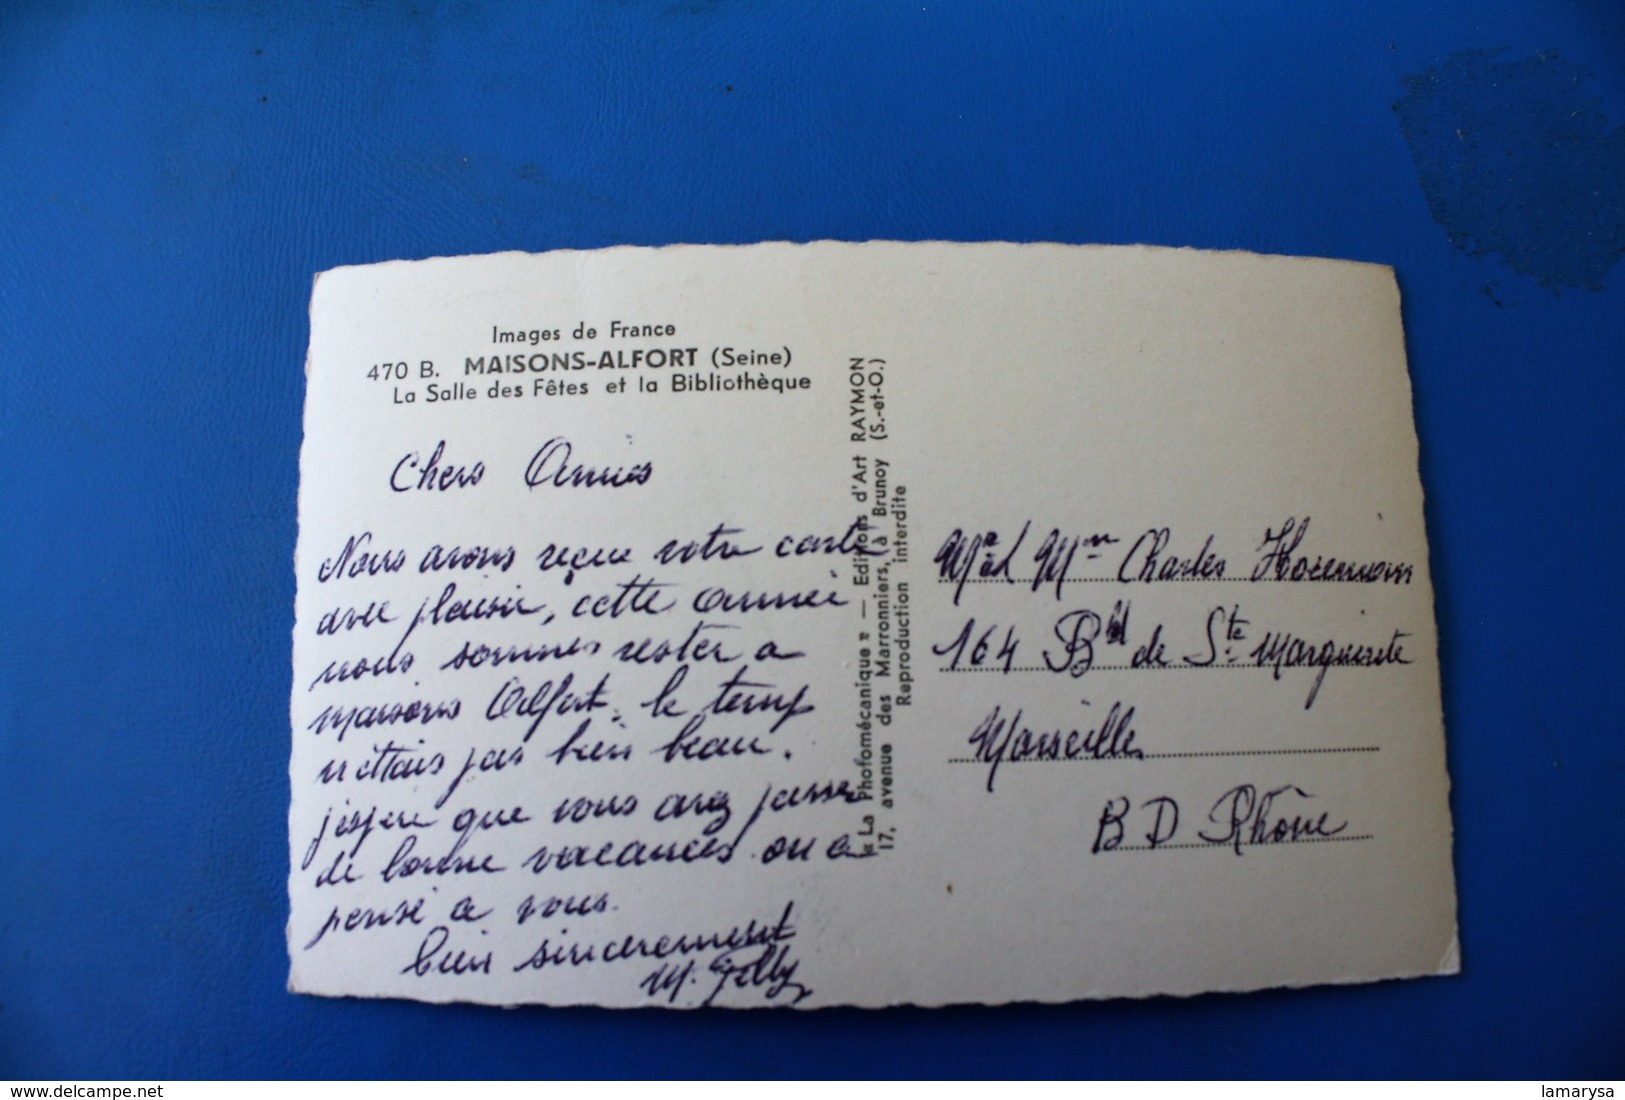 Images de France
470 B. MAISONS-ALFORT (Seine)
La Salle des Fêtes et la Bibliothèque
Chers Amies
Nous avons reçue votre carte
avec plaisir, cette année
nous sommes rester a
maisons Alfort, le temp
n'ettais pas bien beau.
j'espere que vous avez passer
de bonne vacances on a
pensé a vous.
bien sincerement
M. Gelly
« La Photomécanique » — Editions d'Art RAYMON
17, avenue des Marronniers, à Brunoy (S.-et-O.)
Reproduction interdite
Mr et Mme Charles
164 Bd de Ste Marguerite
Marseille
B D Rhône
delcampe.net
lamarysa